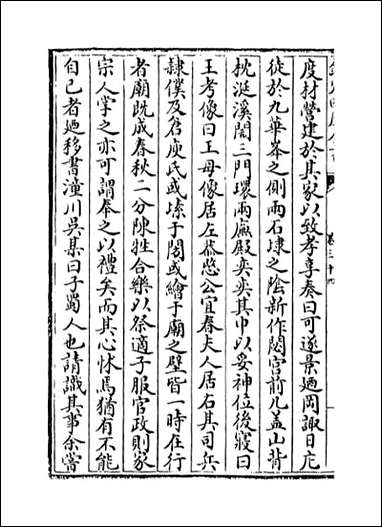 度材營建於其家以致孝享奏曰可遂景廼岡諏日庀
徒於九華峯之側兩石埭之陰新作閟宫前几蓋山背
枕涎溪閎三門環兩廡殿奕奕其中以妥神位後寢曰
王考像曰王母像居左恭愍公宜春夫人居右其司兵
隸僕及詹庾氏或塑于閤或繪于廟之壁皆一時在行
者廟既成春秋二分陳牲合樂以祭適子服官政則家
宗人掌之亦可謂奉之以禮矣而其心怵焉猶有不能
自已者廼移書潼川吳某曰子蜀人也請識其事余嘗
卷三十九